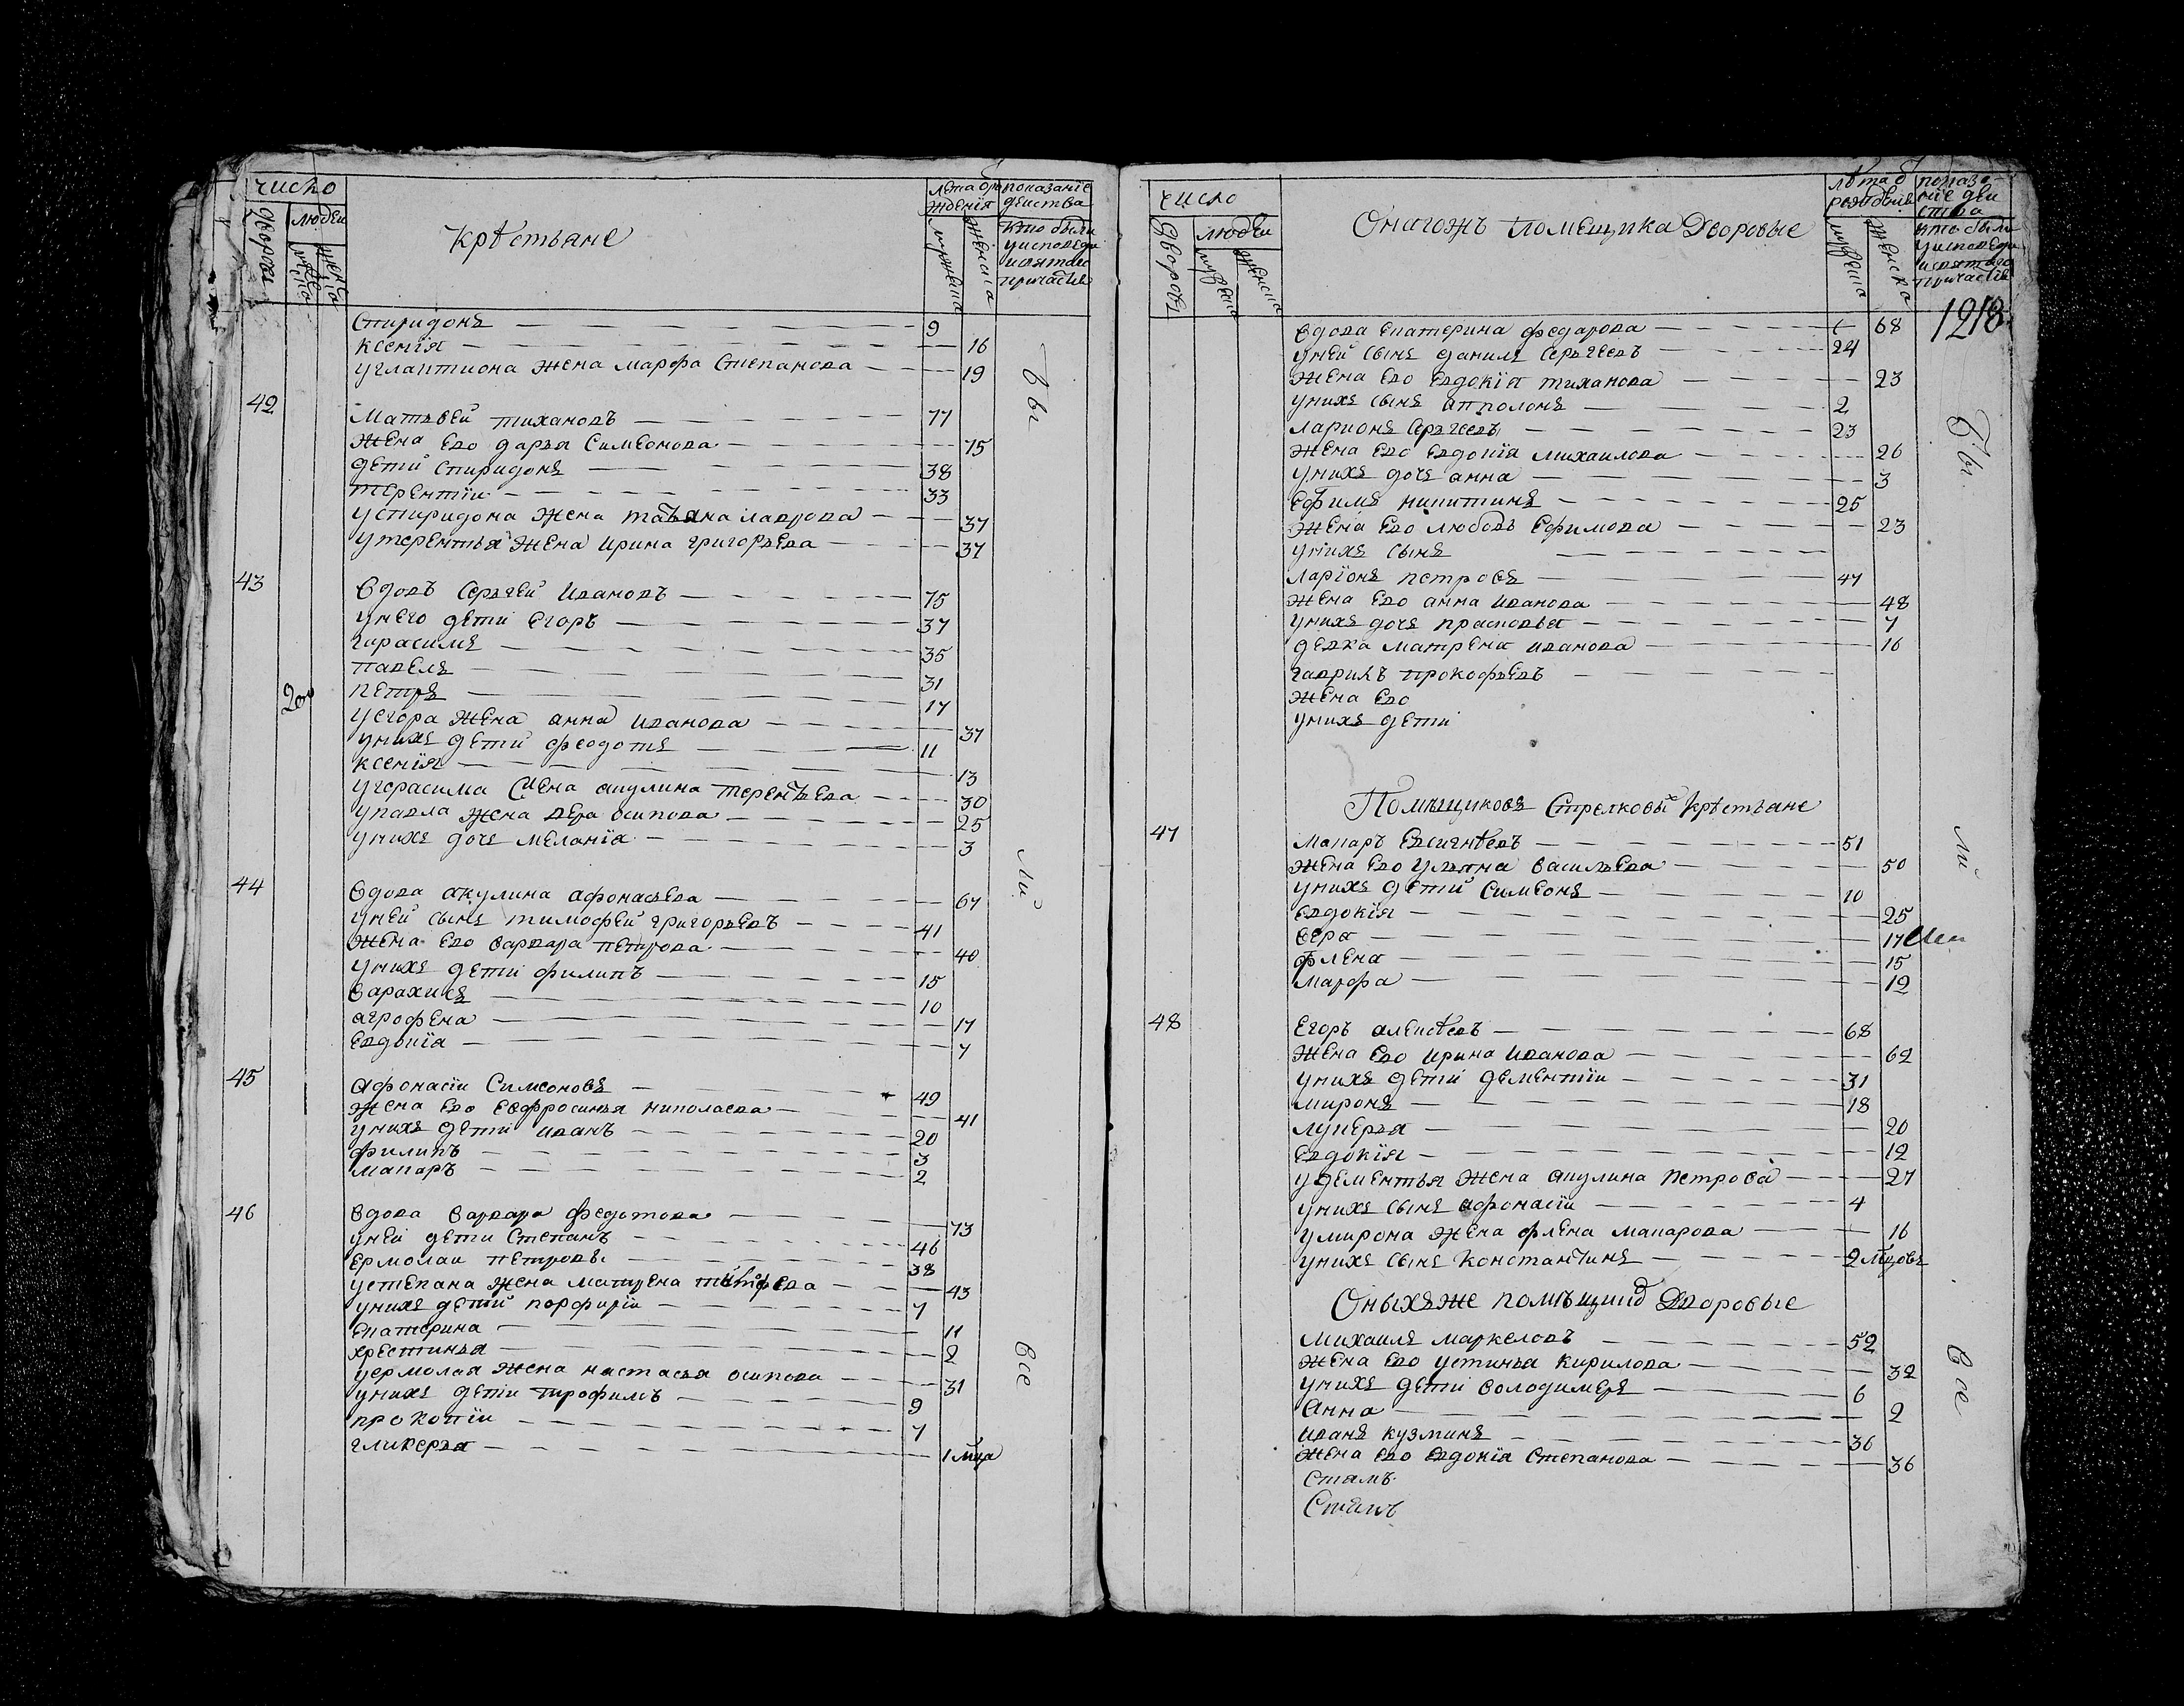 число
дворовъ
людеи
мужеска
женска
крѣстьяне
лѣта орождения
мужеска
женска
показанїе деиства
кто были
уисповеди
исвятаго
причастїя
Спиридонъ 9
ксенїя 16
угалактиона жена марфа Степанова 19
42
Матвеи тихановъ 77
жена ево дарья Симеонова 75
дети спиридонъ 38
терентїи 33
успиридона жена татьяна лаврова 37
утерентья жена ирина григорьева 37
43
вдовъ Сергеи ивановъ 75
унего дети егоръ 37
герасимъ 35
павелъ 31
200
петръ 17
уегора жена анна иванова 37
унихъ дети феодотъ 11
ксенїя 13
угерасима жена акулина терентьева 30
упавла жена вера осипова 25
унихъ дочь меланїа 3
44
вдова акулина афонасьева 67
унеи сынъ тимофеи григорьевъ 41
жена ево варвара петрова 40
унихъ дети филипъ 15
варахисъ 10
агрофена 17
евдокїа 7
45
афонасїи Симеоновъ 49
жена ево евфросинья николаева 41
унихъ дети иванъ 20
филипъ 3
макаръ 2
46
вдова варвара федотова 73
унеи дети Степанъ 46
ермолаи петровъ 38
устепана жена матрена 43
унихъ дети порфирїи 7
екатерина 11
хрестинья 2
уермолая жена настасья осипова 31
унихъ дети трофимъ 9
прокопїи 7
гликерья 1 мца
бы
ли
все
число
дворовъ
людеи
мужеска
женска
Онагожъ помещика Дворовые
лѣта орождѣнїя
мужеска
женска
показанїе деиства
кто были
уисповеди
исвятаго
причастїя
1218
вдова екатерина федарова 68
унеи сынъ данилъ Сергеевъ 24
жена ево евдокїя тиханова 23
унихъ сынъ апполонъ 2
ларионъ Сергеевъ 23
жена ево евдокїя михаилова 26
унихъ дочь анна 3
ефимъ никитинъ 25
жена ево любовь ефимова 23
унихъ сынъ
ларїонъ петровъ 47
жена ево анна иванова 48
унихъ дочь прасковья 7
девка матрена иванова 16
гаврилъ прокофьевъ
жена ево
унихъ дети
Помѣщиковъ Стрелковыхъ крѣстьяне
47
Макаръ евсигнѣевъ 51
жена ево ульяна васильева 50
унихъ дети Симеонъ 10
евдокїя 25
вера 17
флена 15
марфа 12
48
егоръ алексѣевъ 68
жена ево ирина иванова 62
унихъ дети дементїи 31
миронъ 18
лукерья 20
евдокїя 12
удементья жена акулина петрова 27
унихъ сынъ афонасїи 4
умирона жена флена макарова 16
унихъ сынъ Константинъ 2 мцовъ
Оныхъже помѣщик Дворовые
Михаилъ маркеловъ 52
жена ево устинья кирилова 32
унихъ дети володимеръ 6
Анна 2
иванъ кузминъ 36
жена ево евдокїя Степанова 36
Стапъ
Стапъ
бы
ли
все